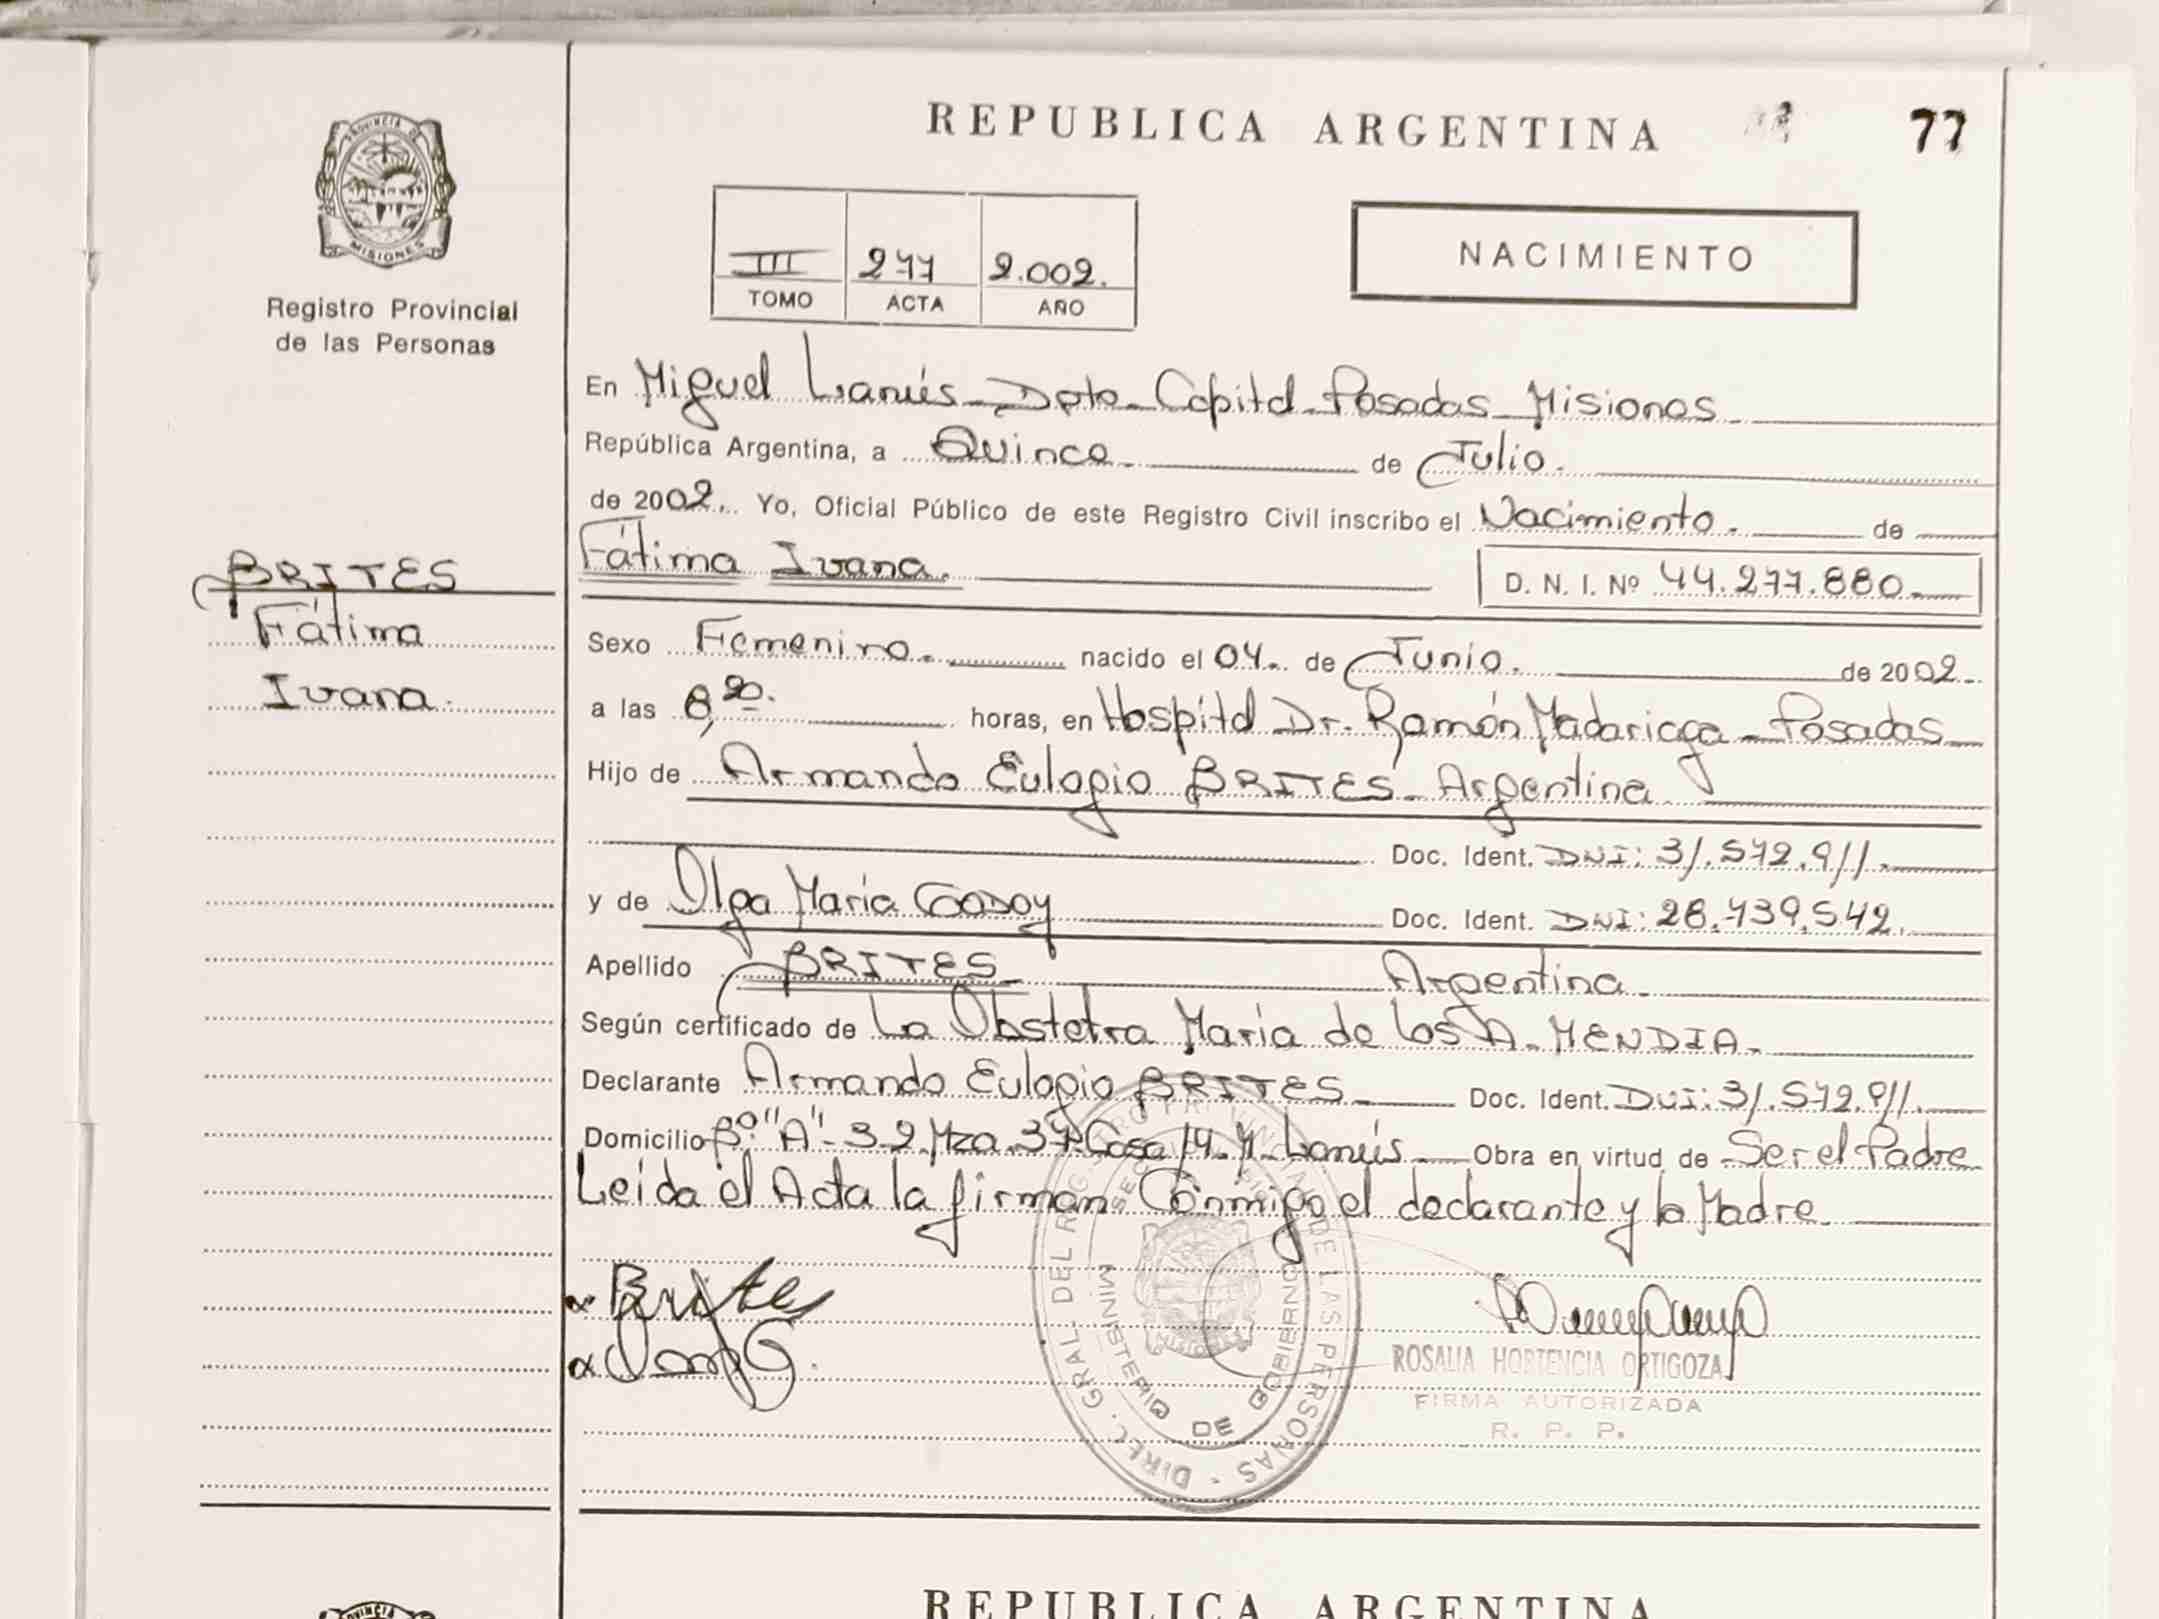 REPUBLICA ARGENTINA
77
PROVINCIA DE
MISIONES
Registro Provincial
de las Personas
III 277 2.002.
TOMO ACTA AÑO
NACIMIENTO
En Miguel Lanús - Dpto - Capital - Posadas - Misiones
República Argentina, a Quince de Julio.
de 2002. Yo, Oficial Público de este Registro Civil inscribo el Nacimiento. de
Fátima Ivana. D. N. I. Nº 44.277.880.
BRITES
Fátima
Ivana.
Sexo Femenino. nacido el 04. de Junio. de 2002.
a las 8,20. horas, en Hospital Dr. Ramón Madariaga - Posadas
Hijo de Armando Eulogio BRITES - Argentina
Doc. Ident. DNI: 31.572.911.
y de Olga María GODOY Doc. Ident. DNI: 28.739.542.
Apellido BRITES Argentina
Según certificado de La Obstetra María de los A. MENDIA.
Declarante Armando Eulogio BRITES Doc. Ident. DNI: 31.572.911.
Domicilio Bº "A" - 3-2 Mza. 37 Casa 14. M. Lanús Obra en virtud de Ser el Padre
Leída el Acta la firman Conmigo el declarante y la Madre
Brites
DIREC. GRAL. DEL REGISTRO PROVINCIAL DE LAS PERSONAS
MINISTERIO DE GOBIERNO
ROSALIA HORTENCIA ORTIGOZA
FIRMA AUTORIZADA
R. P. P.
PROVINCIA
REPUBLICA ARGENTINA